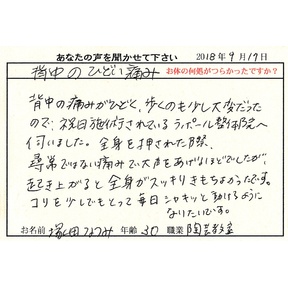 あなたの声を聞かせて下さい 2018年9月17日
背中のひどい痛み お体の何処がつらかったですか?
背中の痛みがひどく、歩くのも少し大変だった
ので、祝日施術されているラポール整体院へ
伺いました。全身を押された際、
尋常ではない痛みで大声をあげたいほどでしたが、
起き上がると全身がスッキリきもちよかったです。
コリを少しでもとって毎日シャキッと動けるように
なりたいです。
お名前 塚田なつみ 年齢 30 職業 陶芸教室